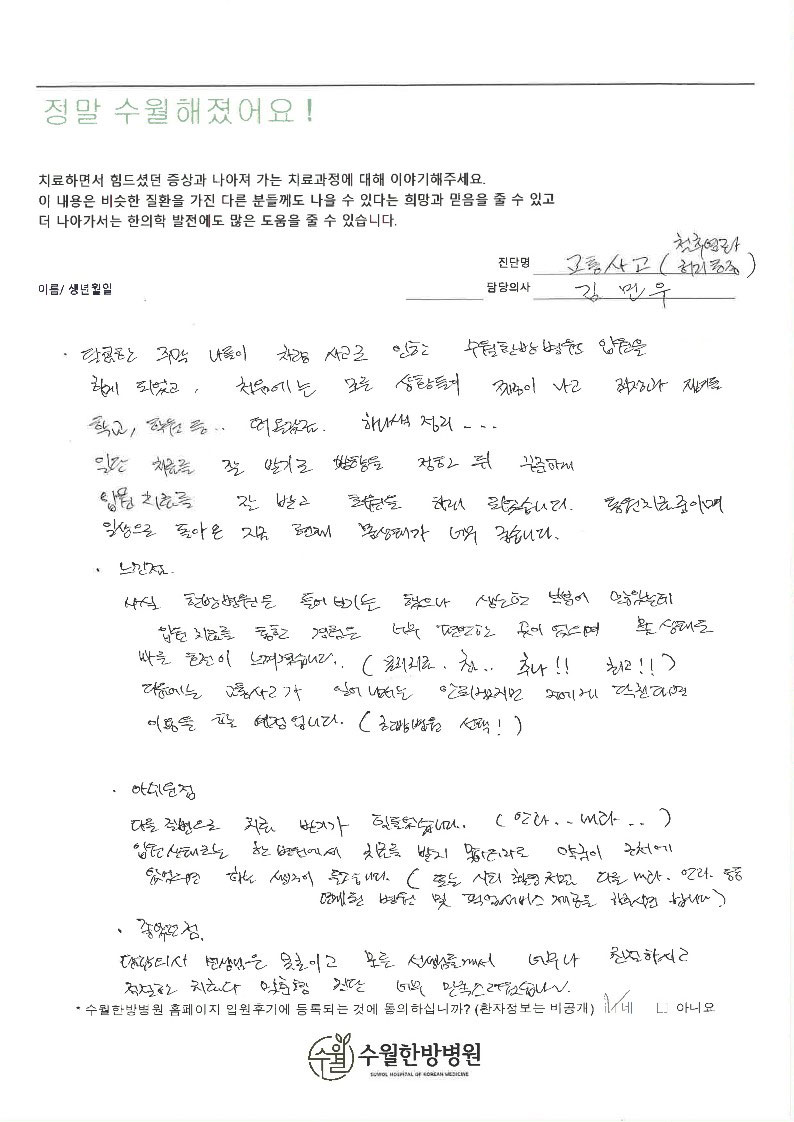 정말 수월해졌어요!
치료하면서 힘드셨던 증상과 나아져 가는 치료과정에 대해 이야기해주세요.
이 내용은 비슷한 질환을 가진 다른 분들께도 나을 수 있다는 희망과 믿음을 줄 수 있고
더 나아가서는 한의학 발전에도 많은 도움을 줄 수 있습니다.
척추염좌
진단명 교통사고 (허리통증)
이름/ 생년월일 담당의사 김민우
· 달콤한 주말 나들이 차량 사고로 인한 수월한방병원 입원을
하게 되었고, 처음에는 모든 상황들이 짜증이 나고 직장과 자녀들
학교, 학원 등.. 하나씩 정리 ...
일단 치료를 잘 받기로 방향을 정한 뒤 꾸준하게
입원 치료를 잘 받고 퇴원을 하게 되었습니다. 통원치료 중이며
일상으로 돌아온 지금 현재 몸상태가 너무 좋습니다.
· 느낀점.
사실 한방병원은 들어 보기는 했으나 생소한 부분이 있었는데
입원 치료를 통한 경험은 너무 편안한 곳이 었으며 몸 상태를
바른 호전이 느껴졌습니다.. (물리치료. 침.. 추나!! 최고!!)
다음에는 교통사고가 일어나서는 안되겠지만 또에게 닥친다면
이용을 또는 예정 입니다. (한방병원 선택!)
· 아쉬운점
다른 질병으로 치료 받기가 힘들었습니다.. (안과.. 내과..)
입원상태로는 한 병원에서 치료를 받지 못하므로 약국이 근처에
있었으면 하는 생각이 듭니다. (또는 사진 촬영처럼 다른 내과. 안과. 등등
연계된 병원 및 픽업서비스 제공을 하셨으면 합니다)
· 좋았던 점.
담당의사 선생님은 물론이고 모든 선생님들께서 너무나 친절하시고
적절한 치료와 맞춤형 진단 너무 만족스러웠습니다~
* 수월한방병원 홈페이지 입원후기에 등록되는 것에 동의하십니까? (환자정보는 비공개) ☑ 네 □ 아니요
수월 수월한방병원
SUWOL HOSPITAL OF KOREAN MEDICINE